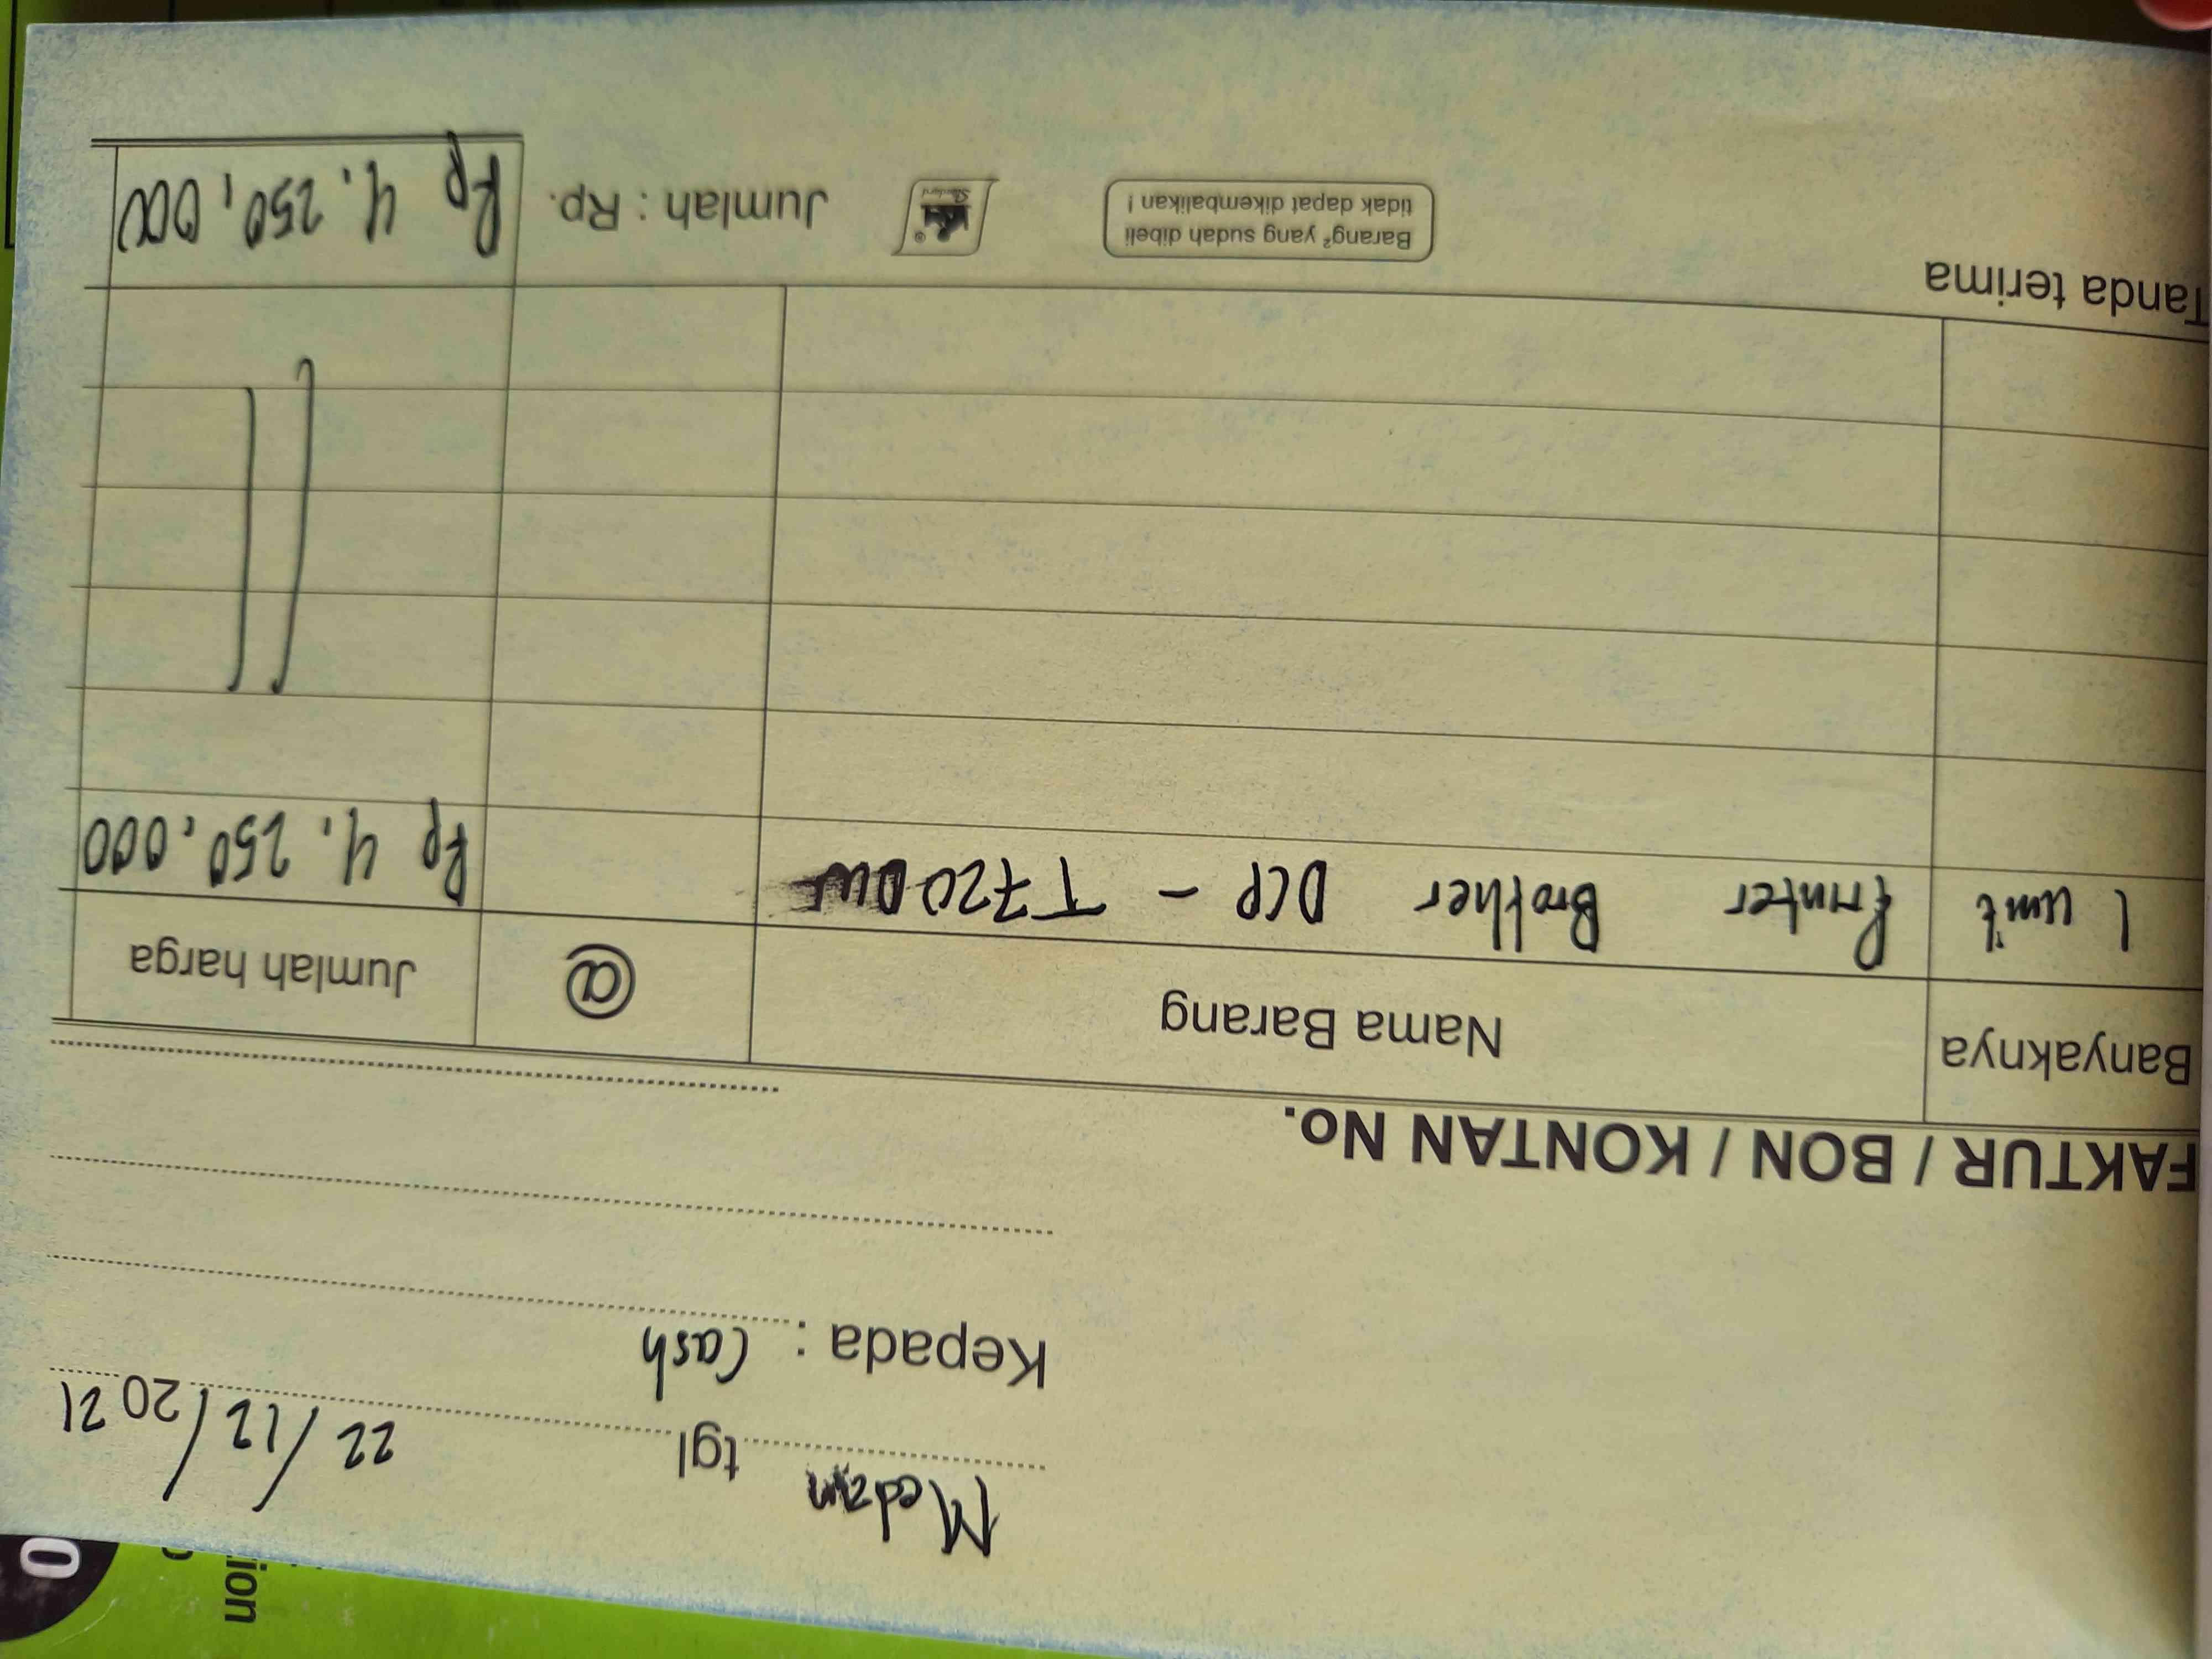 Medan tgl 22/12/2021
Kepada : Cash
FAKTUR / BON / KONTAN No.
Banyaknya Nama Barang @ Jumlah harga
1 unit Printer Brother DCP - T720DW Rp 4.250.000
Tanda terima
Barang² yang sudah dibeli
tidak dapat dikembalikan !
Jumlah : Rp. Rp 4.250.000
ion
0